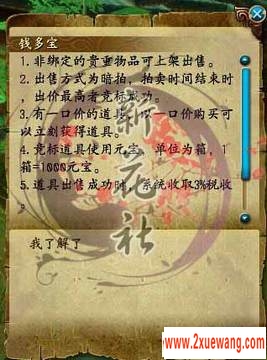 钱多宝
1.非绑定的贵重物品可上架出售。
2.出售方式为暗拍，拍卖时间结束时
，出价最高者竞标成功。
3.有一口价的道具，以一口价购买可
以立刻获得道具。
4.竞标道具使用元宝，单位为箱，1
箱=1000元宝。
5.道具出售成功时，系统收取3%税收
。
我了解了
新花社
www.2xuewang.com